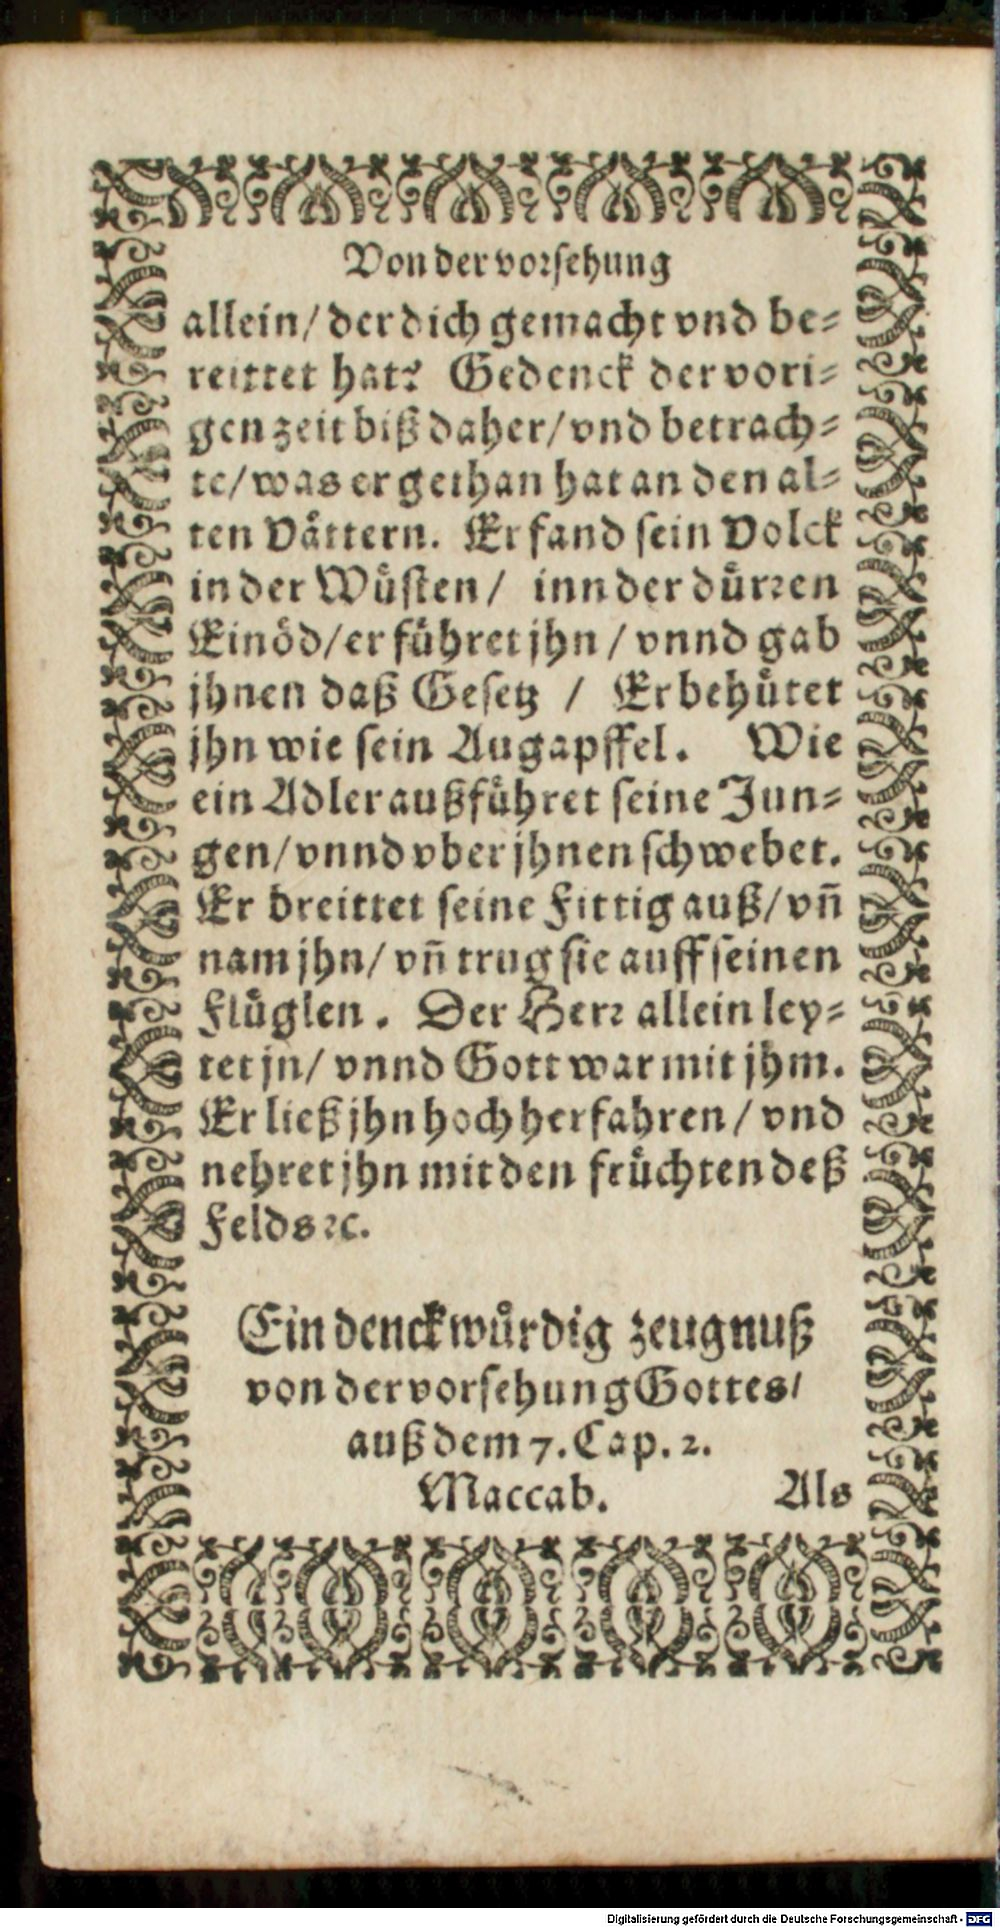 Von der vorsehung
allein/ der dich gemacht vnd be-
reittet hat? Gedenck der vori-
gen zeit biß daher/ vnd betrach-
te/ was er gethan hat an den al-
ten Våttern. Er fand sein Volck
in der Wůsten/ inn der důrren
Einôd/ er fůhret jhn / vnnd gab
jhnen daß Gesetz / Er behůtet
jhn wie sein Augapffel. Wie
ein Adler außfůhret seine Jun-
gen/ vnnd vber jhnen schwebet.
Er breittet seine Fittig auß/ vn̄
nam jhn/ vn̄ trug sie auff seinen
Flůglen. Der Herr allein ley-
tet jn/ vnnd Gott war mit jhm.
Er ließ jhn hoch herfahren / vnd
nehret jhn mit den frůchten deß
Felds ꝛc.
Ein denckwůrdig zeugnuß
von der vorsehung Gottes/
auß dem 7. Cap. 2.
Maccab. Als
Digitalisierung gefördert durch die Deutsche Forschungsgemeinschaft - DFG